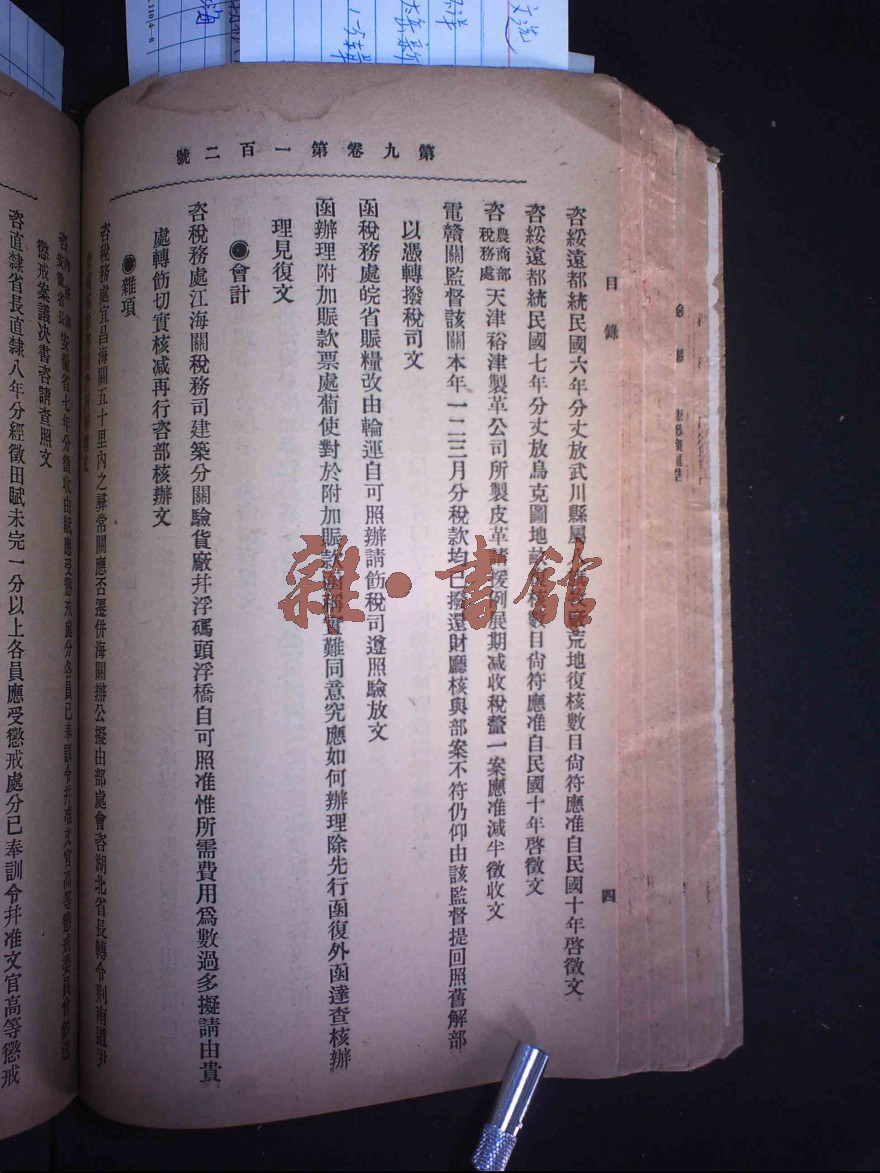 第九卷第一百二號
目錄
四
咨綏遠都統民國六年分丈放武川縣屬荒地復核數目尙符應准自民國十年啓徵文
咨綏遠都統民國七年分丈放烏克圖地畝復核數目尙符應准自民國十年啓徵文
咨農商部稅務處天津裕津製革公司所製皮革請援例展期減收稅釐一案應准減半徵收文
電贛關監督該關本年一二三月分稅款均已撥還財廳核與部案不符仍仰由該監督提回照舊解部
以憑轉撥稅司文
函稅務處皖省賑糧改由輪運自可照辦請飭稅司遵照驗放文
函辦理附加賑款票處葡使對於附加賑款函稱實難同意究應如何辦理除先行函復外函達查核辦
理見復文
◉會計
咨稅務處江海關稅務司建築分關驗貨廠幷浮碼頭浮橋自可照准惟所需費用爲數過多擬請由貴
處轉飭切實核減再行咨部核辦文
◉雜項
咨稅務處宜昌海關五十里內之彝常關應否還併海關辦公擬由部處會咨湖北省長轉令荊南道尹
咨安徽省長安徽省七年分徵收田賦應受懲戒處分各員已奉訓令幷准文官高等懲戒委員會
懲戒案議决書咨請查照文
咨直隸省長直隸八年分經徵田賦未完一分以上各員應受懲戒處分已奉訓令幷准文官高等懲戒
雜·書館